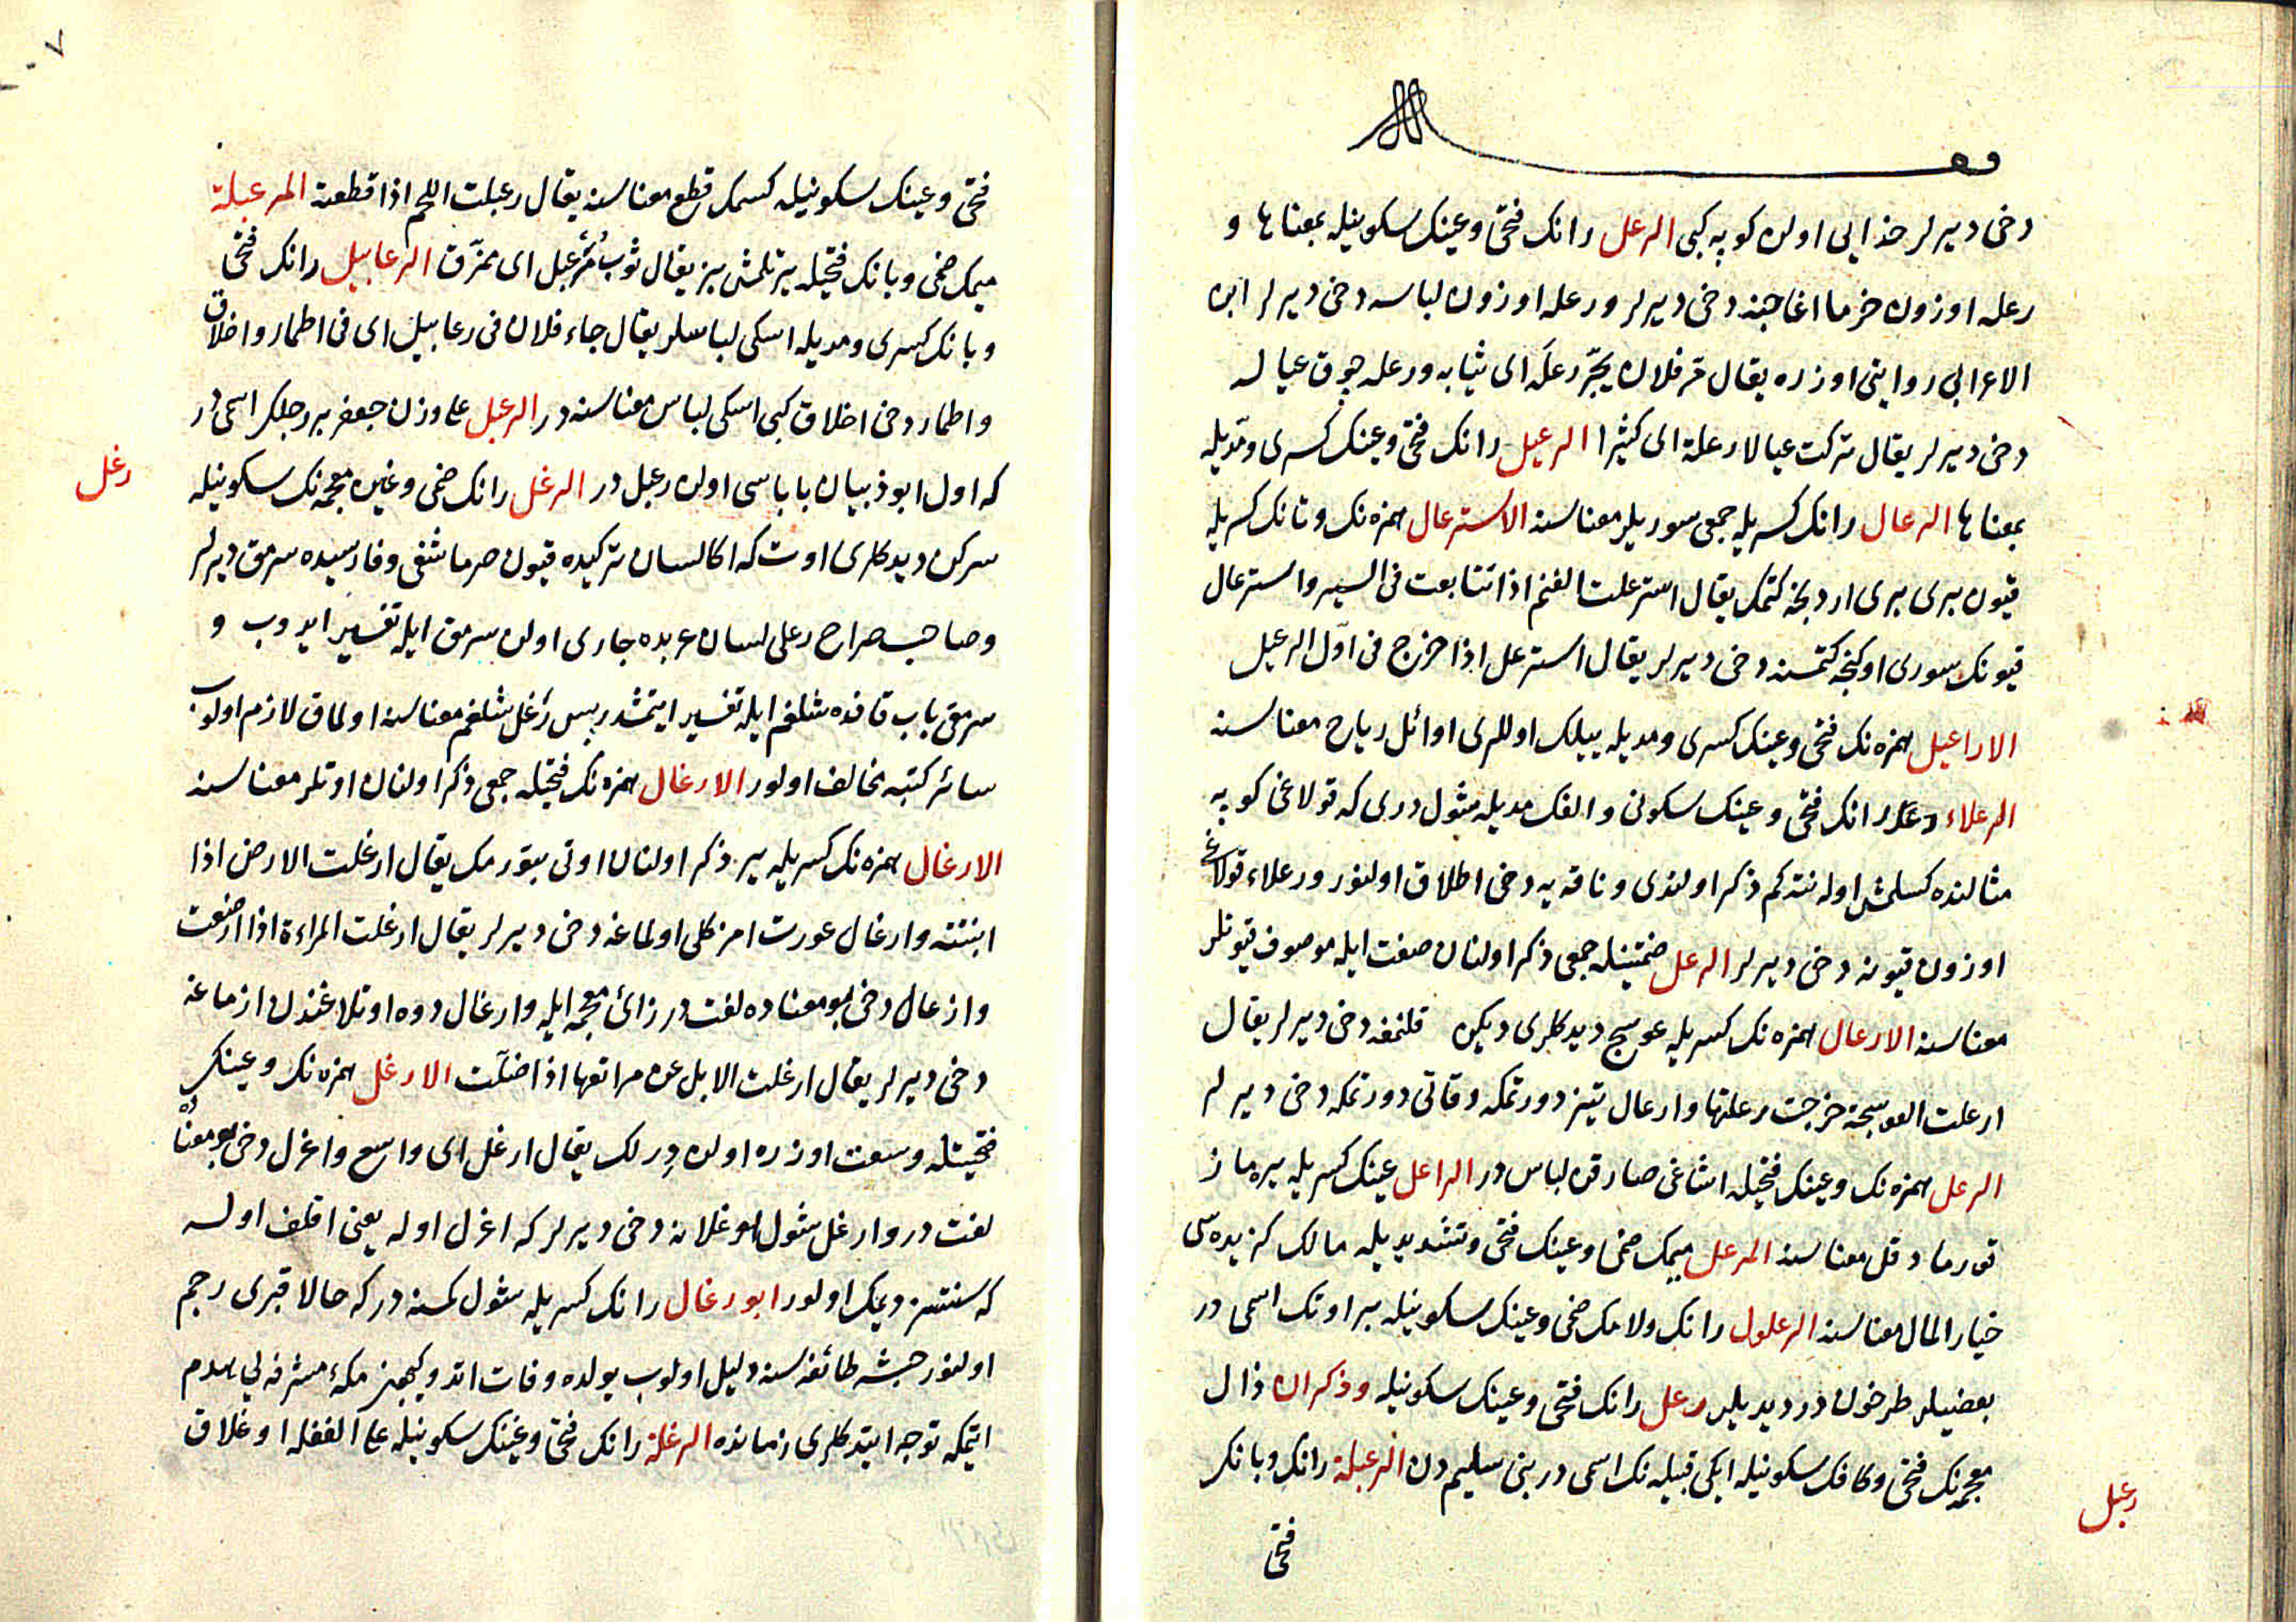 وقف
دخی دیرلر حذایی اولن کوپه کبی الرعل رانک فتحی وعینک سکونیله بمعناها و
رعله اوزون خرما اغاجنه دخی دیرلر ورعله اوزون لباسه دخی دیرلر ابن
الاعرابی روایتی اوزره یقال مر فلان یجر رعله ای ثیابه ورعله چوق عیاله
دخی دیرلر یقال ترکت عیالا رعلة ای کثیرا الرعیل رانک فتحی وعینک کسری ومدیله
بمعناها الرعال رانک کسریله جمعی سوریلر معناسنه الاسترعال همزه نک وتانک کسریله
قیون بری بری اردنجه کتمک یقال استرعلت الغنم اذا تتابعت فی السیر واسترعال
قیونک سوری اوکنجه کتمسنه دخی دیرلر یقال استرعل اذا خرج فی اول الرعیل
الاراعیل همزه نک فتحی وعینک کسری ومدیله ییلک اوللری اوائل ریاح معناسنه
الرعلاء رانک فتحی وعینک سکونی والفک مدیله شول دری که قولاغی کوپه
مثالنده کسلمش اوله نته کم ذکر اولندی وناقه یه دخی اطلاق اولنور ورعلاء قولاغی
اوزون قیونه دخی دیرلر الرعل ضمتینله جمعی ذکر اولنان صفت ایله موصوف قیونلر
معناسنه الارعال همزه نک کسریله عوسج دیدکلری دیکن قلنمغه دخی دیرلر یقال
ارعلت العوسجة خرجت رعلتها وارعال تیز دورتمکه وقاتی دورتمکه دخی دیرلر
الرعل همزه نک وعینک فتحیله اشاغی صارقن لباس در الراعل عینک کسریله یره ماز
قورما دقل معناسنه المرعل میمک ضمی وعینک فتحی وتشدیدیله مالک کزیده سی
خیار المال معناسنه الرعلول رانک ولامک ضمی وعینک سکونیله بر اوتک اسمی در
بعضیلر طرخون در دیدیلر رعل رانک فتحی وعینک سکونیله وذکران ذال
معجمه نک فتحی وکافک سکونیله ایکی قبیله نک اسمی در بنی سلیم دن الرعبلة رانک وبانک
رعبل
فتحی
فتحی وعینک سکونیله کسمک قطع معناسنه یقال رعبلت اللحم اذا قطعته المرعبلة
میمک ضمی وبانک فتحیله یرتلمش بز یقال ثوب مرعبل ای ممزق الرعابیل رانک فتحی
وبانک کسری ومدیله اسکی لباسلر یقال جاء فلان فی رعابیل ای فی اطمار واخلاق
واطمار دخی اخلاق کبی اسکی لباس معناسنه در الرعبل علی وزن جعفر بر رجلک اسمی در
که اول ابو ذبیان باباسی اولن رعبل در الرغل رانک ضمی وغین معجمه نک سکونیله
رغل
سرکن دیدکلری اوت که اکا لسان ترکیده قیون صرماشغی وفارسیده سرمق دیرلر
وصاحب صراح رغلی لسان عربده جاری اولن سرمق ایله تفسیر ایدوب و
سرمق باب قافده شلغم ایله تفسیر ایتمشدر پس رغل شلغم معناسنه اولماق لازم اولوب
سائر کتبه مخالف اولور الارغال همزه نک فتحیله جمعی ذکر اولنان اوتلر معناسنه
الارغال همزه نک کسریله یر ذکر اولنان اوتی بتورمک یقال ارغلت الارض اذا
انبتته وارغال عورت امزکلی اولماغه دخی دیرلر یقال ارغلت المراءة اذا ارضعت
وازغال دخی بو معناده لغت در زائ معجمه ایله وارغال دوه اوتلاغندن ازماغه
دخی دیرلر یقال ارغلت الابل عن مراتعها اذا ضلت الارغل همزه نک وعینک
فتحیتله وسعت اوزره اولن درلک یقال ارغل ای واسع واغرل دخی بو معناده
لغت در وارغل شول اوغلانه دخی دیرلر که اغرل اوله یعنی اقلف اوله
که سنتسز دیمک اولور ابو رغال رانک کسریله شول کمسنه در که حالا قبری رجم
اولنور حبشه طائفه سنه دلیل اولوب یولده وفات اتدوکیچون مکهٔ مشرفه یی هدم
ایتمکه توجه ایتدکلری زمانده الرغلة رانک فتحی وغینک سکونیله علی الغفله اوغلاق